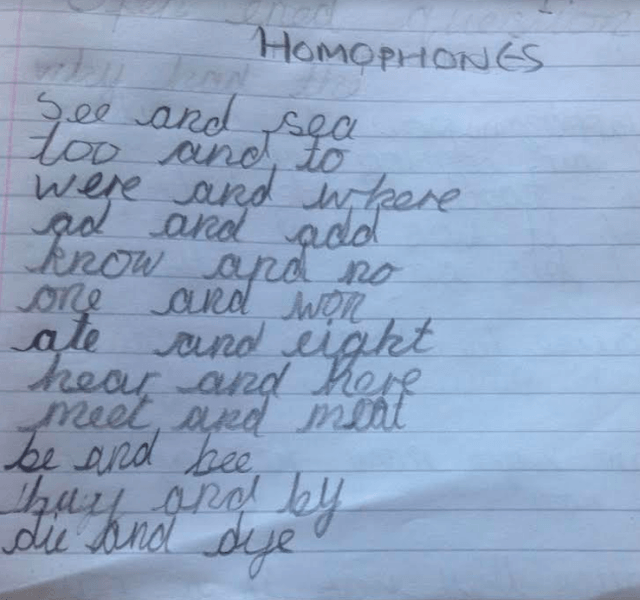 HOMOPHONES
see and sea
too and to
were and where
ad and add
know and no
one and won
ate and eight
hear and here
meet and meat
be and bee
buy and by
die and dye